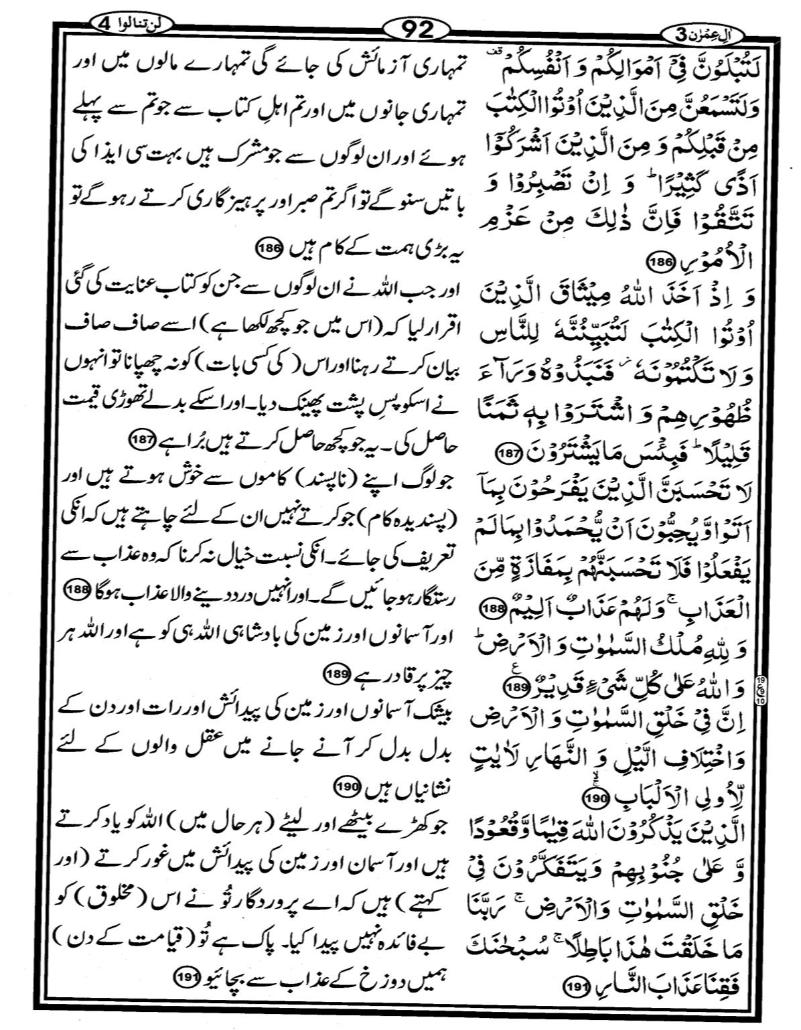 اٰلِ عِمْرٰن 3
92
لن تنالوا 4
لَتُبْلَوُنَّ فِيْۤ اَمْوَالِكُمْ وَ اَنْفُسِكُمْ ۫
وَلَتَسْمَعُنَّ مِنَ الَّذِيْنَ اُوْتُوا الْكِتٰبَ
مِنْ قَبْلِكُمْ وَ مِنَ الَّذِيْنَ اَشْرَكُوْۤا
اَذًى كَثِيْرًا ؕ وَ اِنْ تَصْبِرُوْا وَ
تَتَّقُوْا فَاِنَّ ذٰلِكَ مِنْ عَزْمِ
الْاُمُوْرِ 186
وَ اِذْ اَخَذَ اللّٰهُ مِيْثَاقَ الَّذِيْنَ
اُوْتُوا الْكِتٰبَ لَتُبَيِّنُنَّهٗ لِلنَّاسِ
وَلَا تَكْتُمُوْنَهٗ ؗ فَنَبَذُوْهُ وَرَآءَ
ظُهُوْرِهِمْ وَ اشْتَرَوْا بِهٖ ثَمَنًا
قَلِيْلًا ؕ فَبِئْسَ مَا يَشْتَرُوْنَ 187
لَا تَحْسَبَنَّ الَّذِيْنَ يَفْرَحُوْنَ بِمَاۤ
اَتَوْا وَّ يُحِبُّوْنَ اَنْ يُّحْمَدُوْا بِمَا لَمْ
يَفْعَلُوْا فَلَا تَحْسَبَنَّهُمْ بِمَفَازَةٍ مِّنَ
الْعَذَابِ ۚ وَلَهُمْ عَذَابٌ اَلِيْمٌ 188
وَ لِلّٰهِ مُلْكُ السَّمٰوٰتِ وَ الْاَرْضِ ؕ
وَ اللّٰهُ عَلٰى كُلِّ شَيْءٍ قَدِيْرٌ 189 ع
اِنَّ فِيْ خَلْقِ السَّمٰوٰتِ وَ الْاَرْضِ
وَ اخْتِلَافِ الَّيْلِ وَ النَّهَارِ لَاٰيٰتٍ
لِّاُولِي الْاَلْبَابِ 190
الَّذِيْنَ يَذْكُرُوْنَ اللّٰهَ قِيٰمًا وَّ قُعُوْدًا
وَّ عَلٰى جُنُوْبِهِمْ وَ يَتَفَكَّرُوْنَ فِيْ
خَلْقِ السَّمٰوٰتِ وَ الْاَرْضِ ۚ رَبَّنَا
مَا خَلَقْتَ هٰذَا بَاطِلًا ۚ سُبْحٰنَكَ
فَقِنَا عَذَابَ النَّارِ 191
تمہاری آزمائش کی جائے گی تمہارے مالوں میں اور
تمہاری جانوں میں اور تم اہلِ کتاب سے جو تم سے پہلے
ہوئے اور ان لوگوں سے جو مشرک ہیں بہت سی ایذا کی
باتیں سنو گے تو اگر تم صبر اور پرہیزگاری کرتے رہو گے تو
یہ بڑی ہمت کے کام ہیں 186
اور جب اللہ نے ان لوگوں سے جن کو کتاب عنایت کی گئی
اقرار لیا کہ (اس میں جو کچھ لکھا ہے) اسے صاف صاف
بیان کرتے رہنا اور اس (کی کسی بات) کو نہ چھپانا تو انہوں
نے اسکو پسِ پشت پھینک دیا۔ اور اسکے بدلے تھوڑی قیمت
حاصل کی۔ یہ جو کچھ حاصل کرتے ہیں بُرا ہے 187
جو لوگ اپنے (ناپسند) کاموں سے خوش ہوتے ہیں اور
(پسندیدہ کام) جو کرتے نہیں ان کے لئے چاہتے ہیں کہ انکی
تعریف کی جائے۔ انکی نسبت خیال نہ کرنا کہ وہ عذاب سے
رستگار ہو جائیں گے۔ اور انہیں درد دینے والا عذاب ہوگا 188
اور آسمانوں اور زمین کی بادشاہی اللہ ہی کو ہے اور اللہ ہر
چیز پر قادر ہے 189
بیشک آسمانوں اور زمین کی پیدائش اور رات اور دن کے
بدل بدل کر آنے جانے میں عقل والوں کے لئے
نشانیاں ہیں 190
جو کھڑے بیٹھے اور لیٹے (ہر حال میں) اللہ کو یاد کرتے
ہیں اور آسمان اور زمین کی پیدائش میں غور کرتے (اور
کہتے) ہیں کہ اے پروردگار تُو نے اس (مخلوق) کو
بے فائدہ نہیں پیدا کیا۔ پاک ہے تُو (قیامت کے دن)
ہمیں دوزخ کے عذاب سے بچائیو 191
19
ع
10